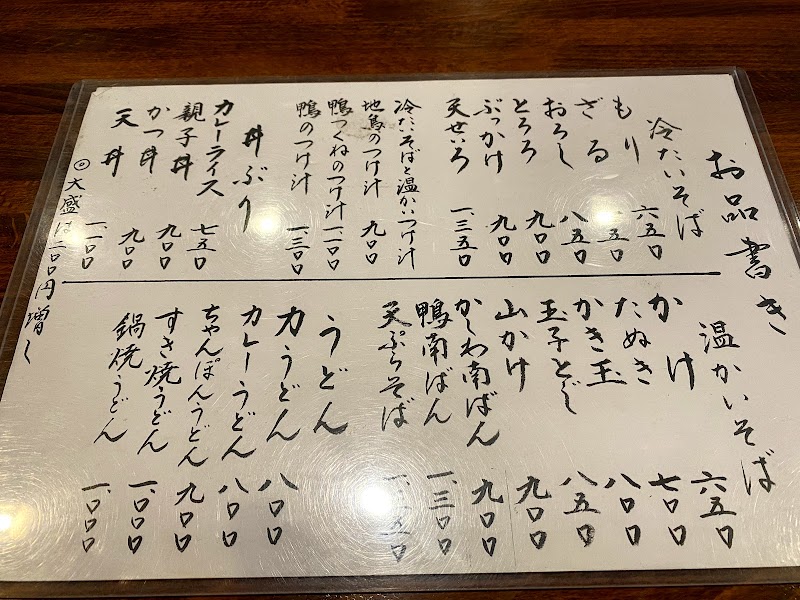 お品書き
冷たいそば
もり 六五〇
ざる 五〇
おろし 八五〇
とろろ 九〇〇
ぶっかけ 九〇〇
天せいろ 一、三五〇
冷たいそばと温かいつけ汁
地鳥のつけ汁 九〇〇
鴨つくねのつけ汁 一、一〇〇
鴨のつけ汁 一、三〇〇
丼ぶり
カレーライス 七五〇
親子丼 九〇〇
かつ丼 九〇〇
天丼 一、一〇〇
◎大盛は二〇〇円増し
温かいそば
かけ 六五〇
たぬき 七〇〇
かき玉 八〇〇
玉子とじ 八五〇
山かけ 九〇〇
かしわ南ばん 九〇〇
鴨南ばん 一、三〇〇
天ぷらそば
うどん
力うどん 八〇〇
カレーうどん 八〇〇
ちゃんぽんうどん 九〇〇
すき焼うどん 一、〇〇〇
鍋焼うどん 一、〇〇〇